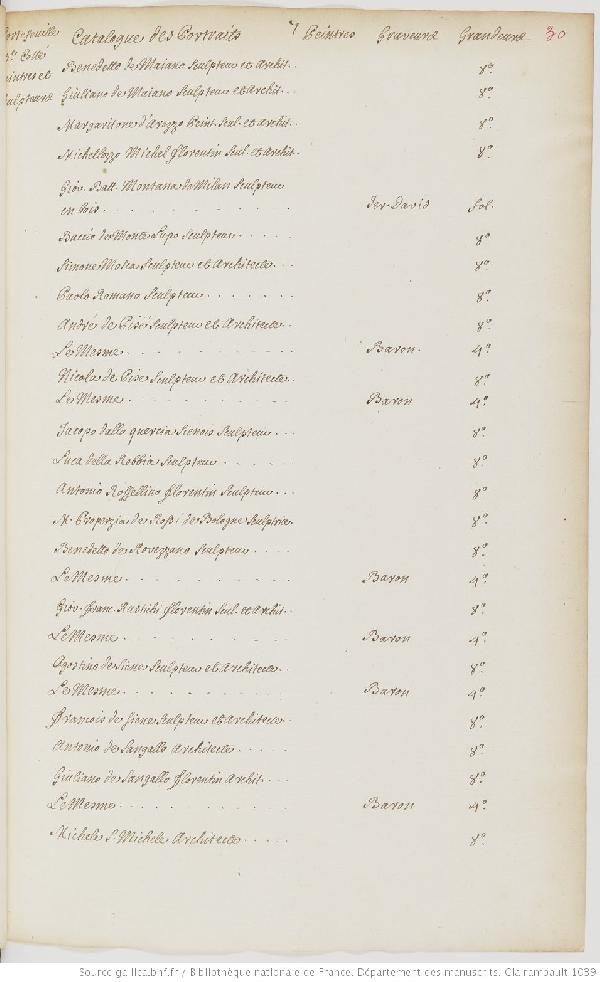 Catalogue des Portraits 7 Peintres Graveurs Grandeurs 30
Peintres et
Sculpteurs
Benedetto de Maiano Sculpteur et Archit. 8°
Giuliano de Maiano Sculpteur et Archit. 8°
Margaritone d'Arezzo Peint. Scul. et Archit. 8°
Michellozzo Michel florentin Scul. et Archit. 8°
Giov. Batt. Montano de Milan Sculpteur
en bois. Jer. David fol.
Baccio de Monte Lupo Sculpteur 8°
Simone Mosca Sculpteur et Architecte 8°
Paolo Romano Sculpteur 8°
André de Pise Sculpteur et Architecte 8°
Le Mesme Baron. 4°
Nicola de Pise Sculpteur et Architecte 8°
Le Mesme Baron 4°
Jacopo dalla quercia Sienois Sculpteur 8°
Luca della Robbia Sculpteur 8°
Antonio Rossellino florentin Sculpteur 8°
M. Properzia de Rossi de Bologne Sculptrice 8°
Benedetto de Rovezzano Sculpteur 8°
Le Mesme Baron 4°
Giov. franc. Rustichi florentin Scul. et Archit. 8°
Le Mesme Baron 4°
Agostino de Siene Sculpteur et Architecte 8°
Le Mesme Baron 4°
francois de Siene Sculpteur et Architecte 8°
Antonio de Sangallo Architecte 8°
Giuliano de Sangallo florentin Archit. 8°
Le Mesme Baron 4°
Michele S. Michele Architecte 8°
Source gallica.bnf.fr / Bibliothèque nationale de France. Département des manuscrits. Clairambault 1039